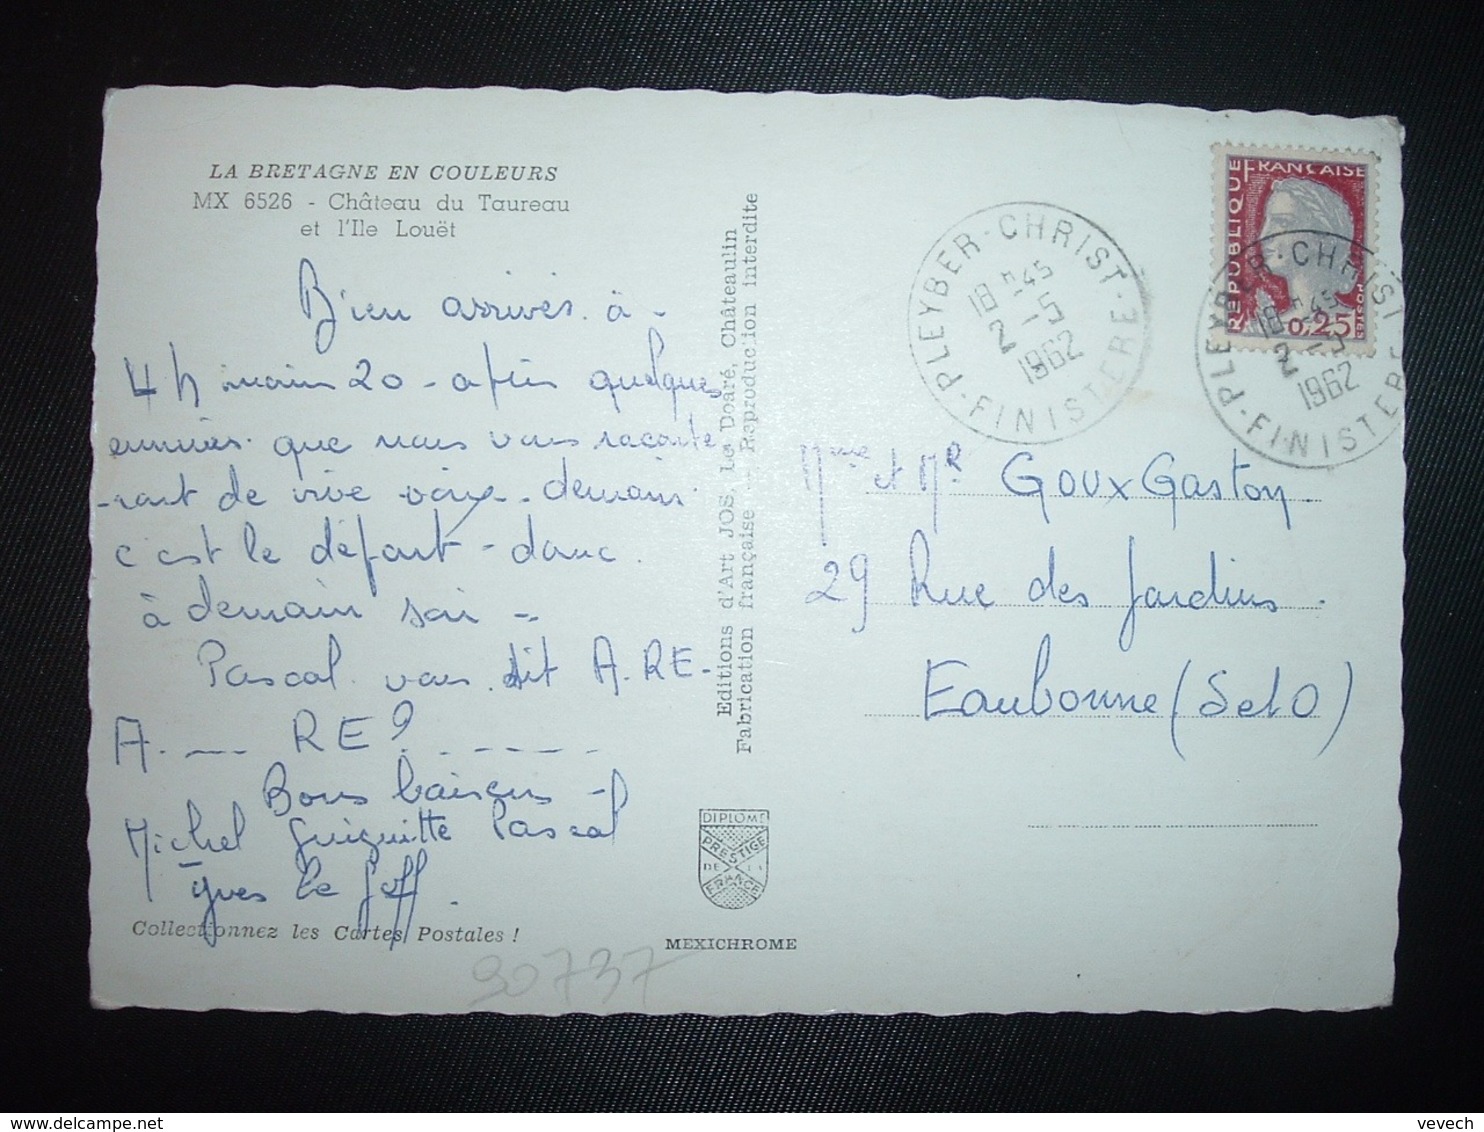 LA BRETAGNE EN COULEURS
MX 6526 - Château du Taureau
et l'Ile Louët
Bien arrivés à
4 h moins 20 - après quelques
ennuis que nous vous raconte
-rons de vive voix - demain
c'est le départ - donc
à demain soir -
Pascal vous dit A.RE-
A. --- RE?
Bons baisers -
Michel Guiguitte Pascal
Yves Le Goff.
Collectionnez les Cartes Postales !
90737
Editions d'Art JOS Le Doaré, Châteaulin
Fabrication française - Reproduction interdite
DIPLOME
PRESTIGE
DE LA
FRANCE
MEXICHROME
PLEYBER-CHRIST
18 H 45
2 -5
1962
FINISTERE
REPUBLIQUE FRANCAISE
POSTES
0,25
PLEYBER-CHRIST
18 H 45
2 -5
1962
FINISTERE
Mme et Mr Goux Gaston
29 Rue des Jardins
Eaubonne (S et O)